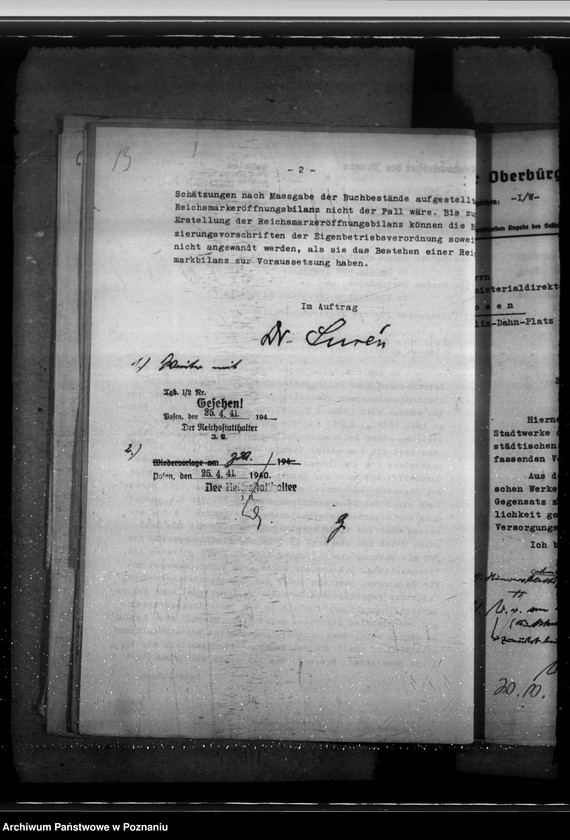 13
- 2 -
Schätzungen nach Massgabe der Buchbestände aufgestellt
Reichsmarkeröffnungsbilanz nicht der Fall wäre. Bis zu
Erstellung der Reichsmarkeröffnungsbilanz können die
zierungsvorschriften der Eigenbetriebsverordnung sowei
nicht angewandt werden, als sie das Bestehen einer Rei
markbilanz zur Voraussetzung haben.
Im Auftrag
Dr. Surén
1.) Weiter mit
Tgb. I/2 Nr.
Gesehen!
Posen, den 25. 4. 41. 194
Der Reichsstatthalter
J. A.
2.)
Wiedervorlage am 194
Posen, den 25. 4. 41 1940.
Der Reichsstatthalter
Oberbürg
-I/W-
inisterialdirekt
o s e n
lix-Dahn-Platz
Hierne
Stadtwerke
städtischen
fassenden V
Aus d
schen Werke
Gegensatz z
lichkeit ge
Versorgungs
Ich b
20.
Archiwum Państwowe w Poznaniu